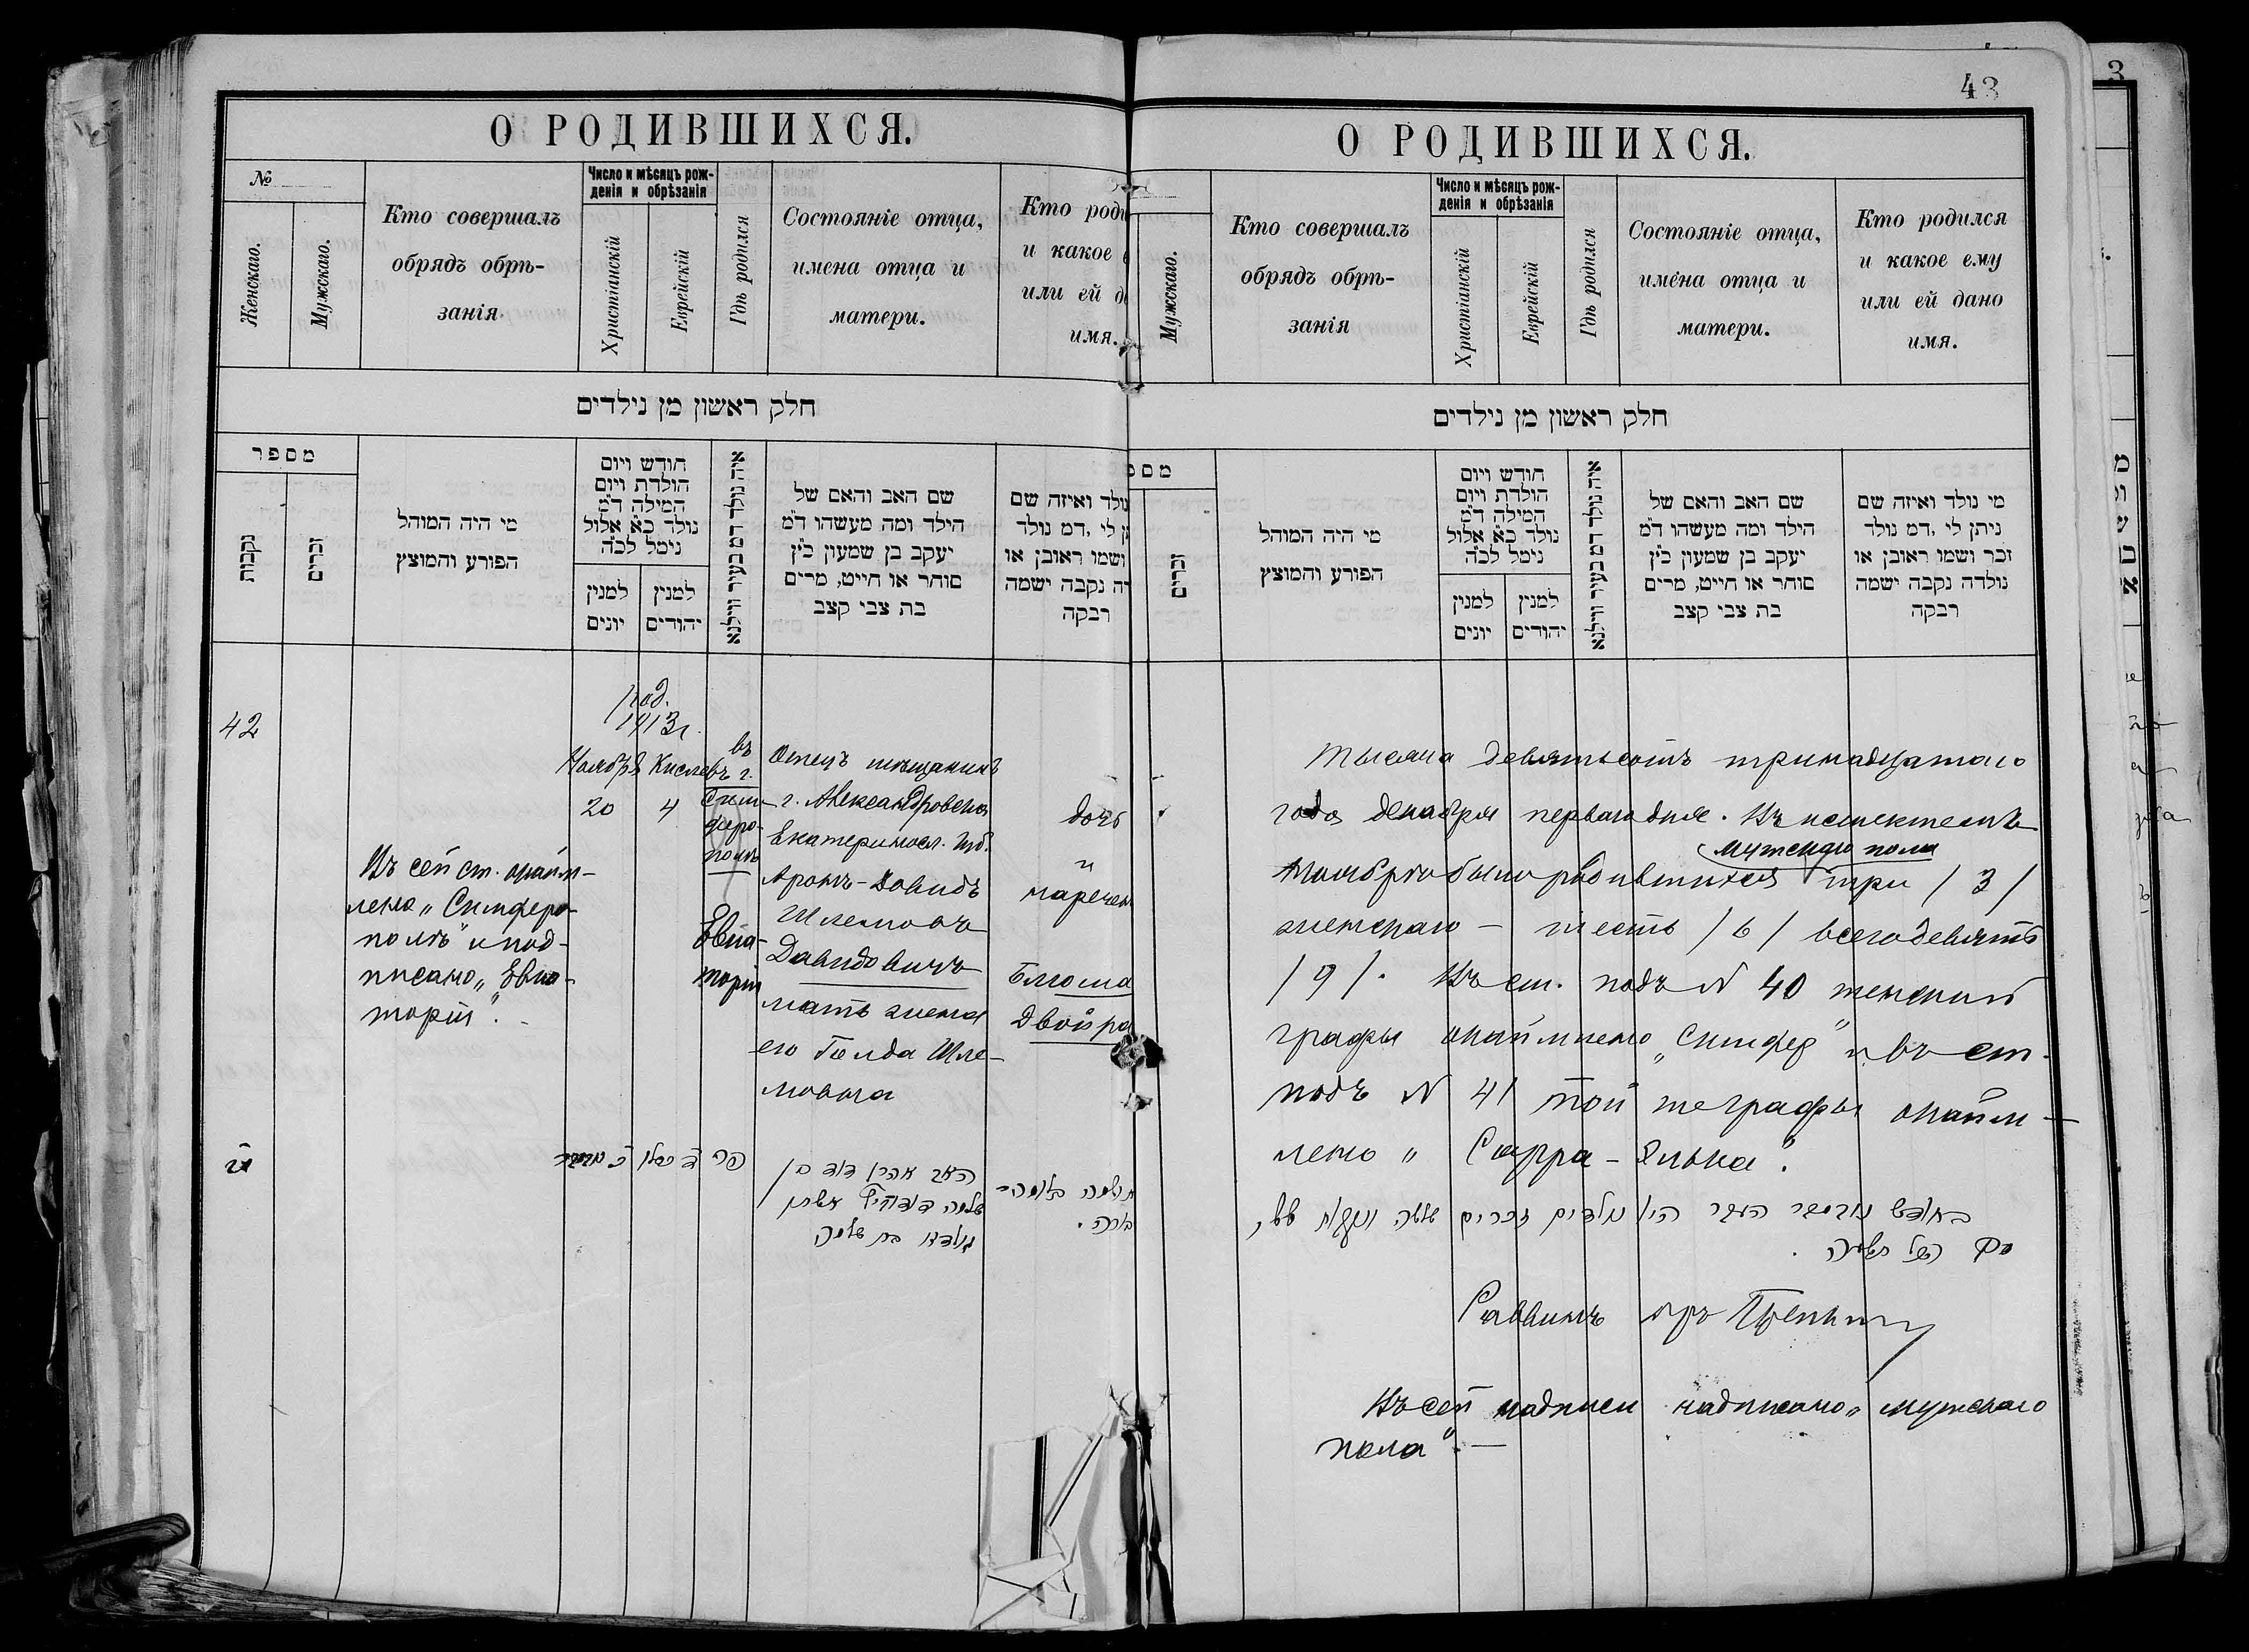 О РОДИВШИХСЯ.
№
Женскаго.
Мужскаго.
Кто совершалъ
обрядъ обрѣ-
занія
Число и мѣсяцъ рож-
денія и обрѣзанія
Христіанскій
Еврейскій
Гдѣ родился
Состояніе отца,
имена отца и
матери.
Кто роди
и какое
или ей д
имя.
חלק ראשון מן נילדים
מספר
נקבות
זכרים
מי היה המוהל
הפורע והמוצץ
חודש ויום
הולדת ויום
המילה ד״מ
נולד כ״א אלול
נימל לכ״ה
למנין
יונים
למנין
יהודים
איה נולד דמ בעיר ווילנא
שם האב והאם של
הילד ומה מעשהו ד״מ
יעקב בן שמעון כ״ץ
סוחר או חייט, מרים
בת צבי קצב
נולד ואיזה שם
לי ,דמ נולד
ושמו ראובן או
דה נקבה ישמה
רבקה
42
год.
1913 г.
Ноябрѣ
20
Кислевъ
4
въ
г.
Сим-
феро-
полѣ
Евпа-
торіи
Въ сей ст. оклейм-
лено „Симферо-
полѣ" и под-
писано „Евпа-
торіи".
Отецъ мѣщанинъ
г. Александровска
Екатериносл. губ.
Аронъ-Довидъ
Шлемовъ
Давидовичъ
мать жена
его Голда Шле-
мовна
дочь
и
наречен
Блюма
Двойра
האב אהרן דוד בן
שלמה
בת שלמה
43
О РОДИВШИХСЯ.
Мужскаго.
Кто совершалъ
обрядъ обрѣ-
занія
Число и мѣсяцъ рож-
денія и обрѣзанія
Христіанскій
Еврейскій
Гдѣ родился
Состояніе отца,
имена отца и
матери.
Кто родился
и какое ему
или ей дано
имя.
חלק ראשון מן נילדים
מספ
זכרים
מי היה המוהל
הפורע והמוצץ
חודש ויום
הולדת ויום
המילה ד״מ
נולד כ״א אלול
נימל לכ״ה
למנין
יונים
למנין
יהודים
איה נולד דמ בעיר ווילנא
שם האב והאם של
הילד ומה מעשהו ד״מ
יעקב בן שמעון כ״ץ
סוחר או חייט, מרים
בת צבי קצב
מי נולד ואיזה שם
ניתן לי ,דמ נולד
זכר ושמו ראובן או
נולדה נקבה ישמה
רבקה
Тысяча девятьсотъ тринадцатаго
года декабря перваго дня. Въ истекшемъ
мужскаго пола
ноябрѣ было родившихся три /3/
женскаго – шесть /6/ всего девять
/9/. Въ ст. подъ № 40 женской
графы оклеймлено „Симфер" и въ ст.
подъ № 41 той же графы оклейм-
лено „Сарра-Элька".
בחודש העבר היו נולדים זכרים שלשה
Раввинъ
Въ сей надписи надписано „мужскаго
пола".–